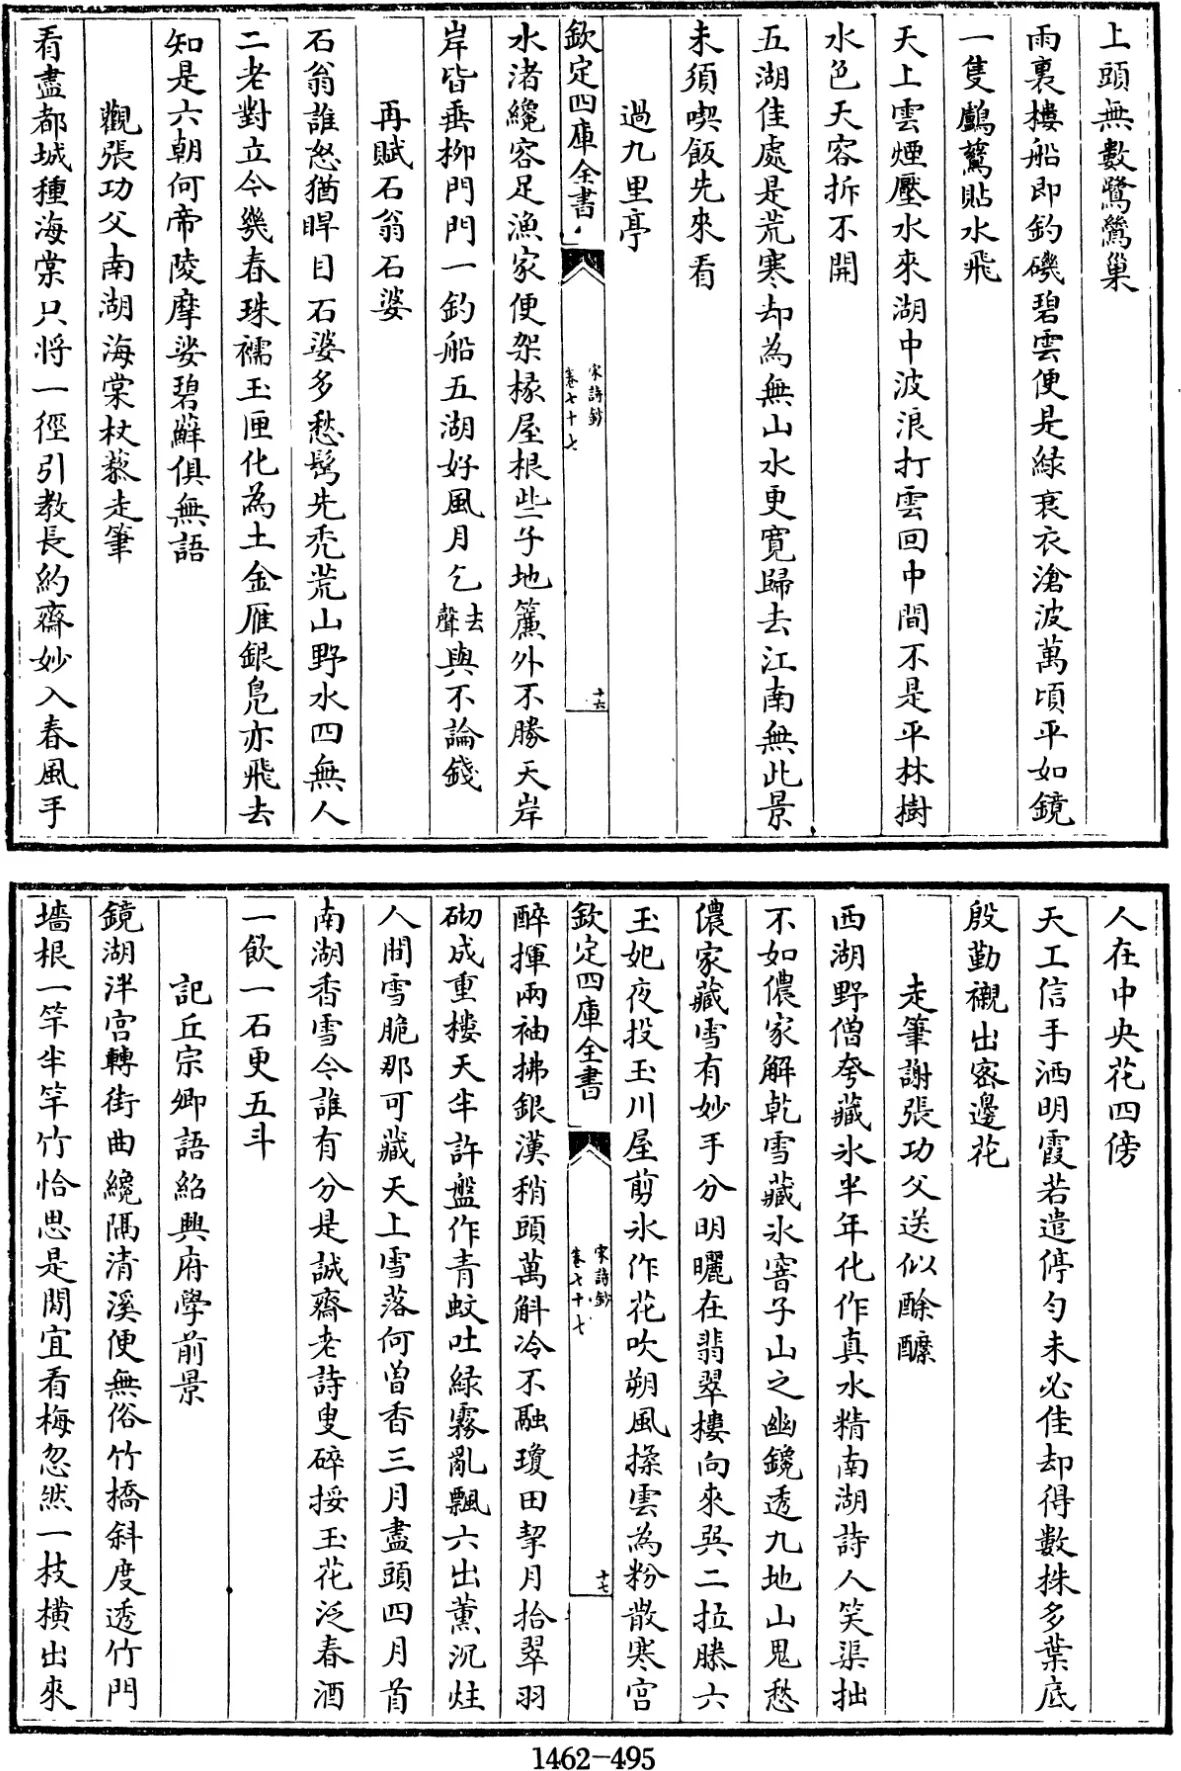 上頭無數鷺鶿巢
雨裏樓船即釣磯碧雲便是緑蓑衣滄波萬頃平如鏡
一隻鸕鶿貼水飛
天上雲煙壓水來湖中波浪打雲回中間不是平林樹
水色天容拆不開
五湖佳處是荒寒却為無山水更寛歸去江南無此景
未須喫飯先來看
過九里亭
欽定四庫全書
宋詩鈔
卷七十七
十六
水渚纔容足漁家便架椽屋根些子地簾外不勝天岸
岸皆垂栁門門一釣船五湖好風月乞去聲與不論錢
再賦石翁石婆
石翁誰怒猶睅目石婆多愁髩先禿荒山野水四無人
二老對立今幾春珠襦玉匣化為土金雁銀鳬亦飛去
知是六朝何帝陵摩娑碧蘚俱無語
觀張功父南湖海棠杖藜走筆
看盡都城種海棠只将一徑引教長約齋妙入春風手
人在中央花四傍
天工信手洒明霞若遣停匀未必佳却得數株多葉底
殷勤襯出密邊花
走筆謝張功父送似酴醿
西湖野僧夸藏氷半年化作真水精南湖詩人笑渠拙
不如儂家解乾雪藏氷窖子山之幽鑱透九地山鬼愁
儂家藏雪有妙手分明曬在翡翠樓向來巽二拉滕六
玉妃夜投玉川屋剪氷作花吹朔風揉雲為粉散寒宮
欽定四庫全書
宋詩鈔
卷七十七
十七
醉揮兩袖拂銀漢稍頭萬斛冷不融瓊田挈月拾翠羽
砌成重樓天半許盤作青蛟吐緑霧亂飄六出薰沉炷
人間雪脆那可藏天上雪落何曽香三月盡頭四月首
南湖香雪今誰有分是誠齋老詩叟碎挼玉花泛春酒
一飲一石更五斗
記丘宗卿語紹興府學前景
鏡湖泮宮轉街曲纔隔清溪便無俗竹橋斜度透竹門
墻根一竿半竿竹恰思是間宜看梅忽然一枝橫出來
1462-495